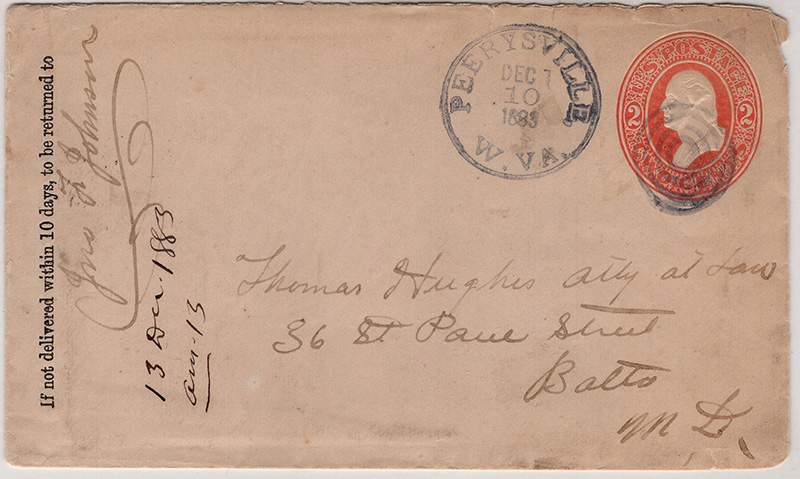 If not delivered within 10 days, to be returned to
Jno F Johnson
13 Dec. 1883
ans. 13
PEERYSVILLE
DEC
10
1883
W. VA.
U.S. POSTAGE
2 2
TWO CENTS
Thomas Hughes atty at Law
36 St Paul Street
Balto
M D,